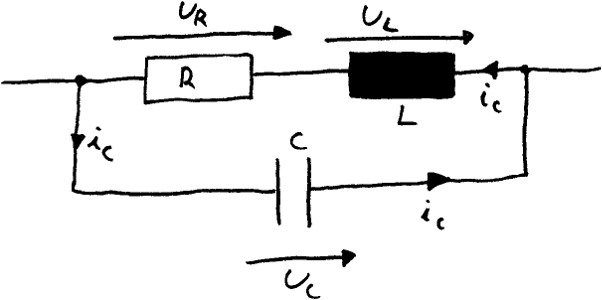 U_R
U_L
R
L
i_c
i_c
C
i_c
U_C